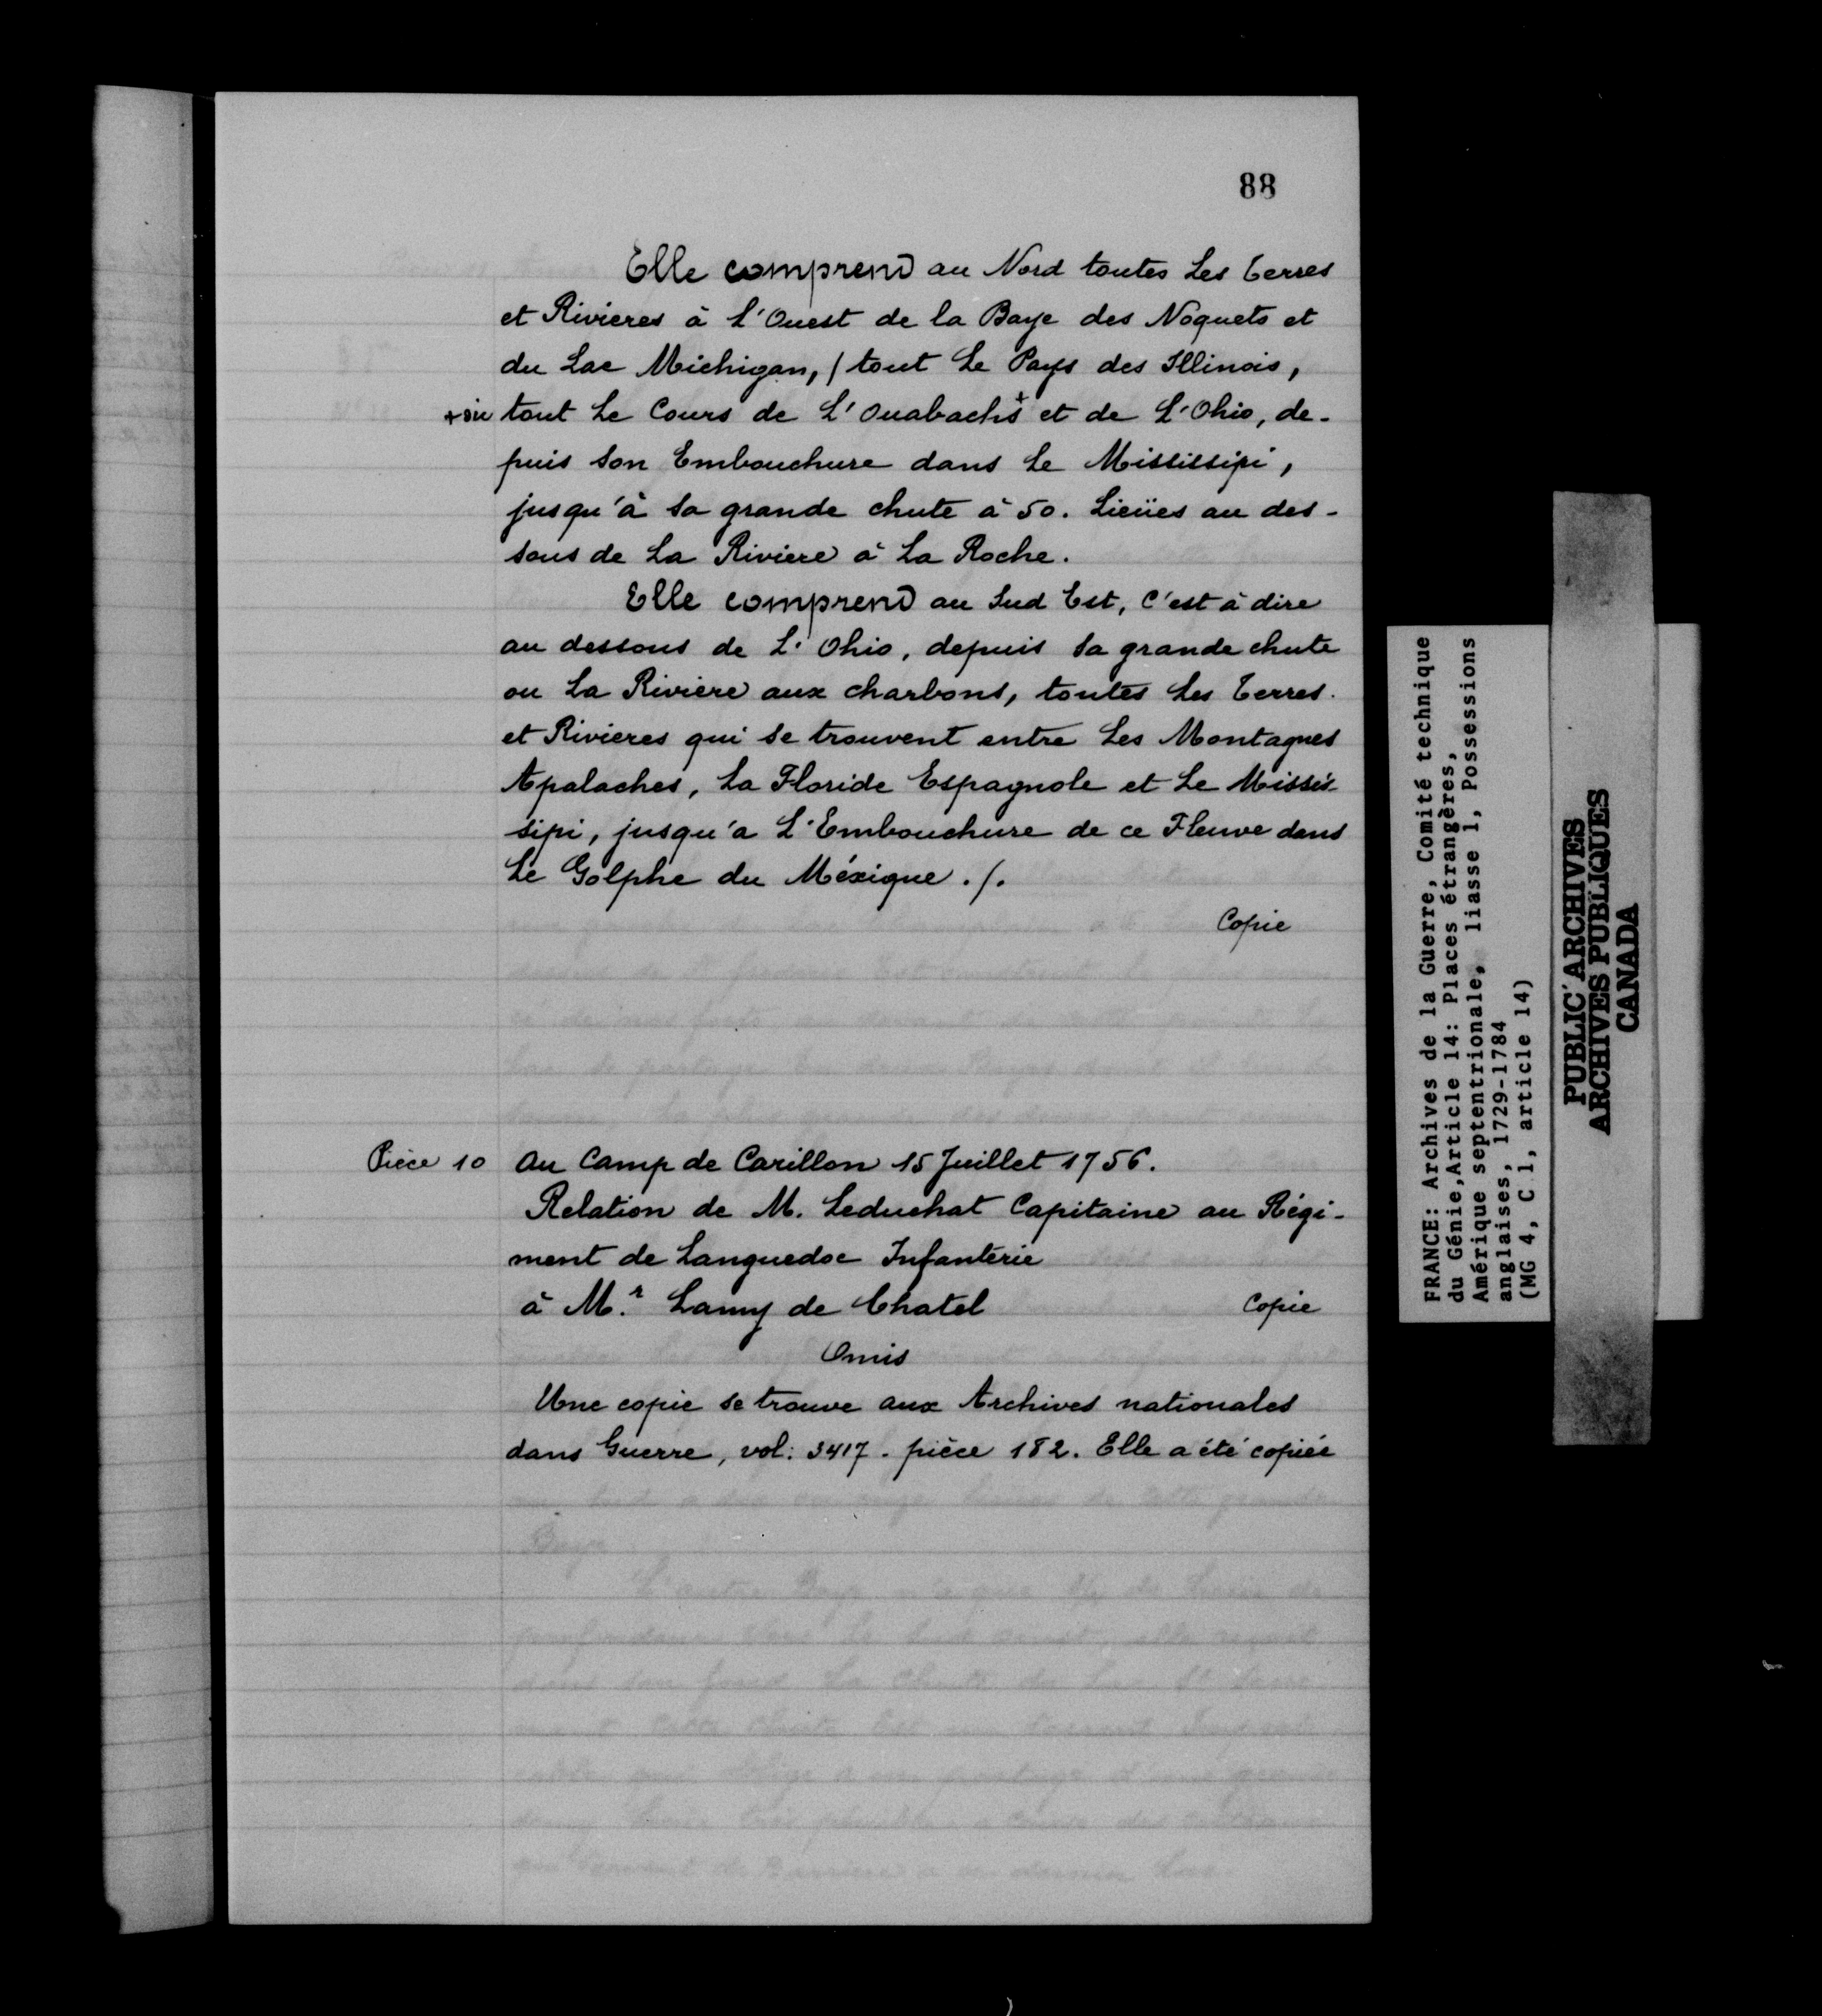 88
Elle comprend au Nord toutes Les Terres
et Rivieres à L'Ouest de la Baye des Noquets et
du Lac Michigan, / tout Le Pays des Illinois,
tout Le Cours de L'Ouabachs + et de L'Ohio, de-
puis son Embouchure dans Le Missisipi,
jusqu'à sa grande chute à 50. Lieües au des-
sous de La Riviere à La Roche.
Elle comprend au Sud Est, C'est à dire
au dessous de L'Ohio, depuis sa grande chute
ou La Rivière aux charbons, toutes Les Terres
et Rivieres qui se trouvent entre Les Montagnes
Apalaches, La Floride Espagnole et Le Missis-
sipi, jusqu'a L'Embouchure de ce Fleuve dans
Le Golphe du Méxique ./.
Copie
Pièce 10 Au Camp de Carillon 15 Juillet 1756.
Relation de M. Leduchat Capitaine au Régi-
ment de Languedoc Infanterie
à M.r Lamy de Chatel Copie
Omis
Une copie se trouve aux Archives nationales
dans Guerre, vol: 3417. pièce 182. Elle a été copiée
FRANCE: Archives de la Guerre, Comité technique
du Génie, Article 14: Places étrangères,
Amérique septentrionale, liasse 1, Possessions
anglaises, 1729-1784
(MG 4, C 1, article 14)
PUBLIC ARCHIVES
ARCHIVES PUBLIQUES
CANADA